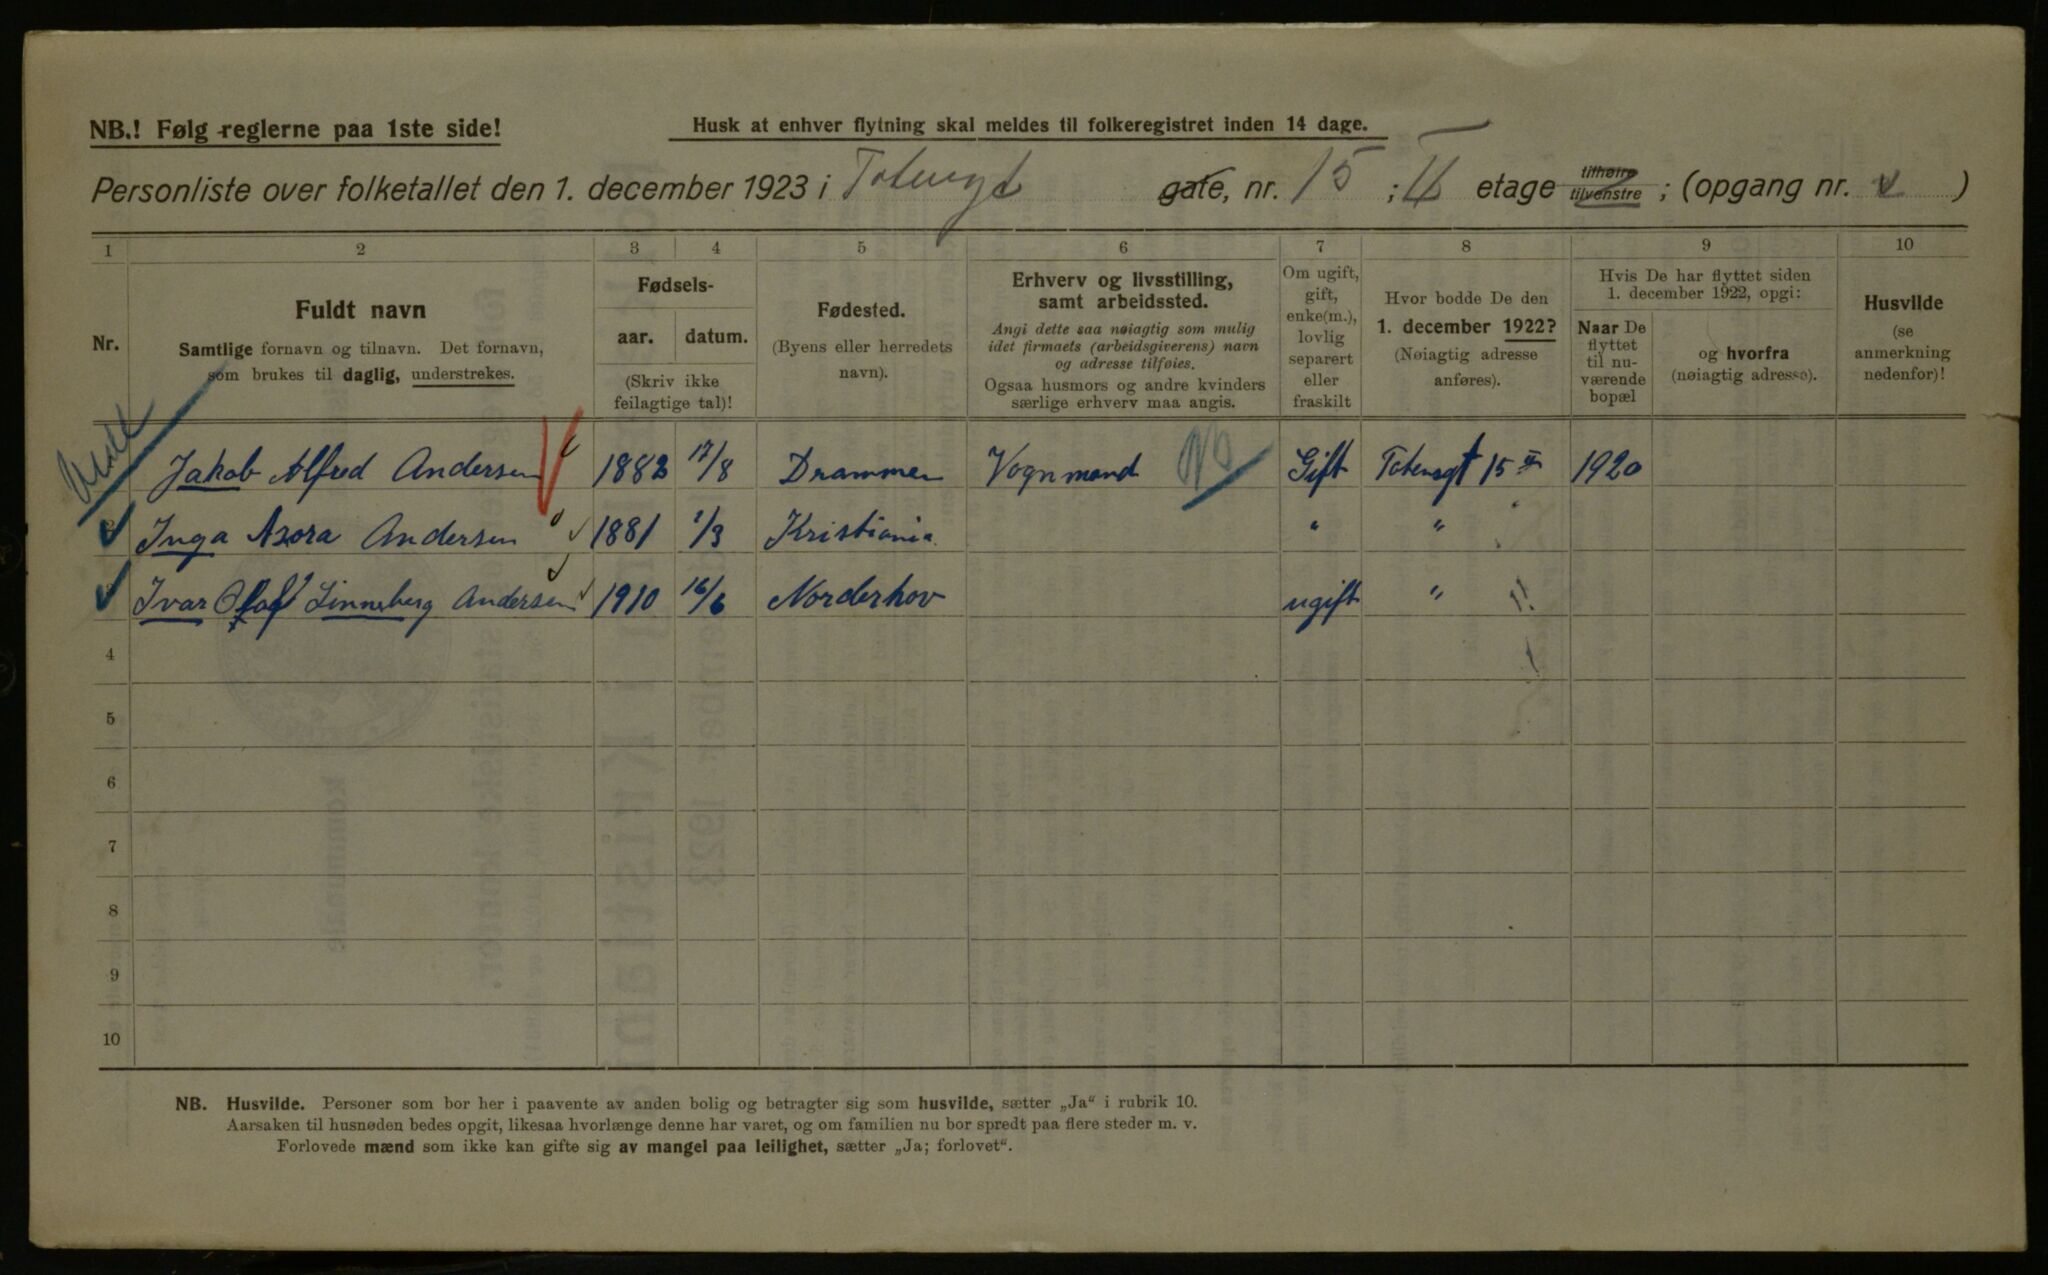 NB.! Følg reglerne paa 1ste side!
Husk at enhver flytning skal meldes til folkeregistret inden 14 dage.
Personliste over folketallet den 1. december 1923 i Totengt gate, nr. 15 ; II etage tilhøire tilvenstre ; (opgang nr. )
1 2 3 4 5 6 7 8 9 10
Nr.
Fuldt navn
Samtlige fornavn og tilnavn. Det fornavn,
som brukes til daglig, understrekes.
Fødsels-
aar. datum.
(Skriv ikke
feilagtige tal)!
Fødested.
(Byens eller herredets
navn).
Erhverv og livsstilling,
samt arbeidssted.
Angi dette saa nøiagtig som mulig
idet firmaets (arbeidsgiverens) navn
og adresse tilføies.
Ogsaa husmors og andre kvinders
særlige erhverv maa angis.
Om ugift,
gift,
enke(m.),
lovlig
separert
eller
fraskilt
Hvor bodde De den
1. december 1922?
(Nøiagtig adresse
anføres).
Hvis De har flyttet siden
1. december 1922, opgi:
Naar De
flyttet
til nu-
værende
bopæl
og hvorfra
(nøiagtig adresse).
Husvilde
(se
anmerkning
nedenfor)!
Jakob Alfred Andersen 1882 17/8 Drammen Vognmand Gift Totensgt 15 II 1920
Inga Azora Andersen 1881 1/3 Kristiania " "
Ivar Olaf Linneberg Andersen 1910 16/6 Norderhov ugift "
4
5
6
7
8
9
10
NB. Husvilde. Personer som bor her i paavente av anden bolig og betragter sig som husvilde, sætter „Ja“ i rubrik 10.
Aarsaken til husnøden bedes opgit, likesaa hvorlænge denne har varet, og om familien nu bor spredt paa flere steder m. v.
Forlovede mænd som ikke kan gifte sig av mangel paa leilighet, sætter „Ja; forlovet“.